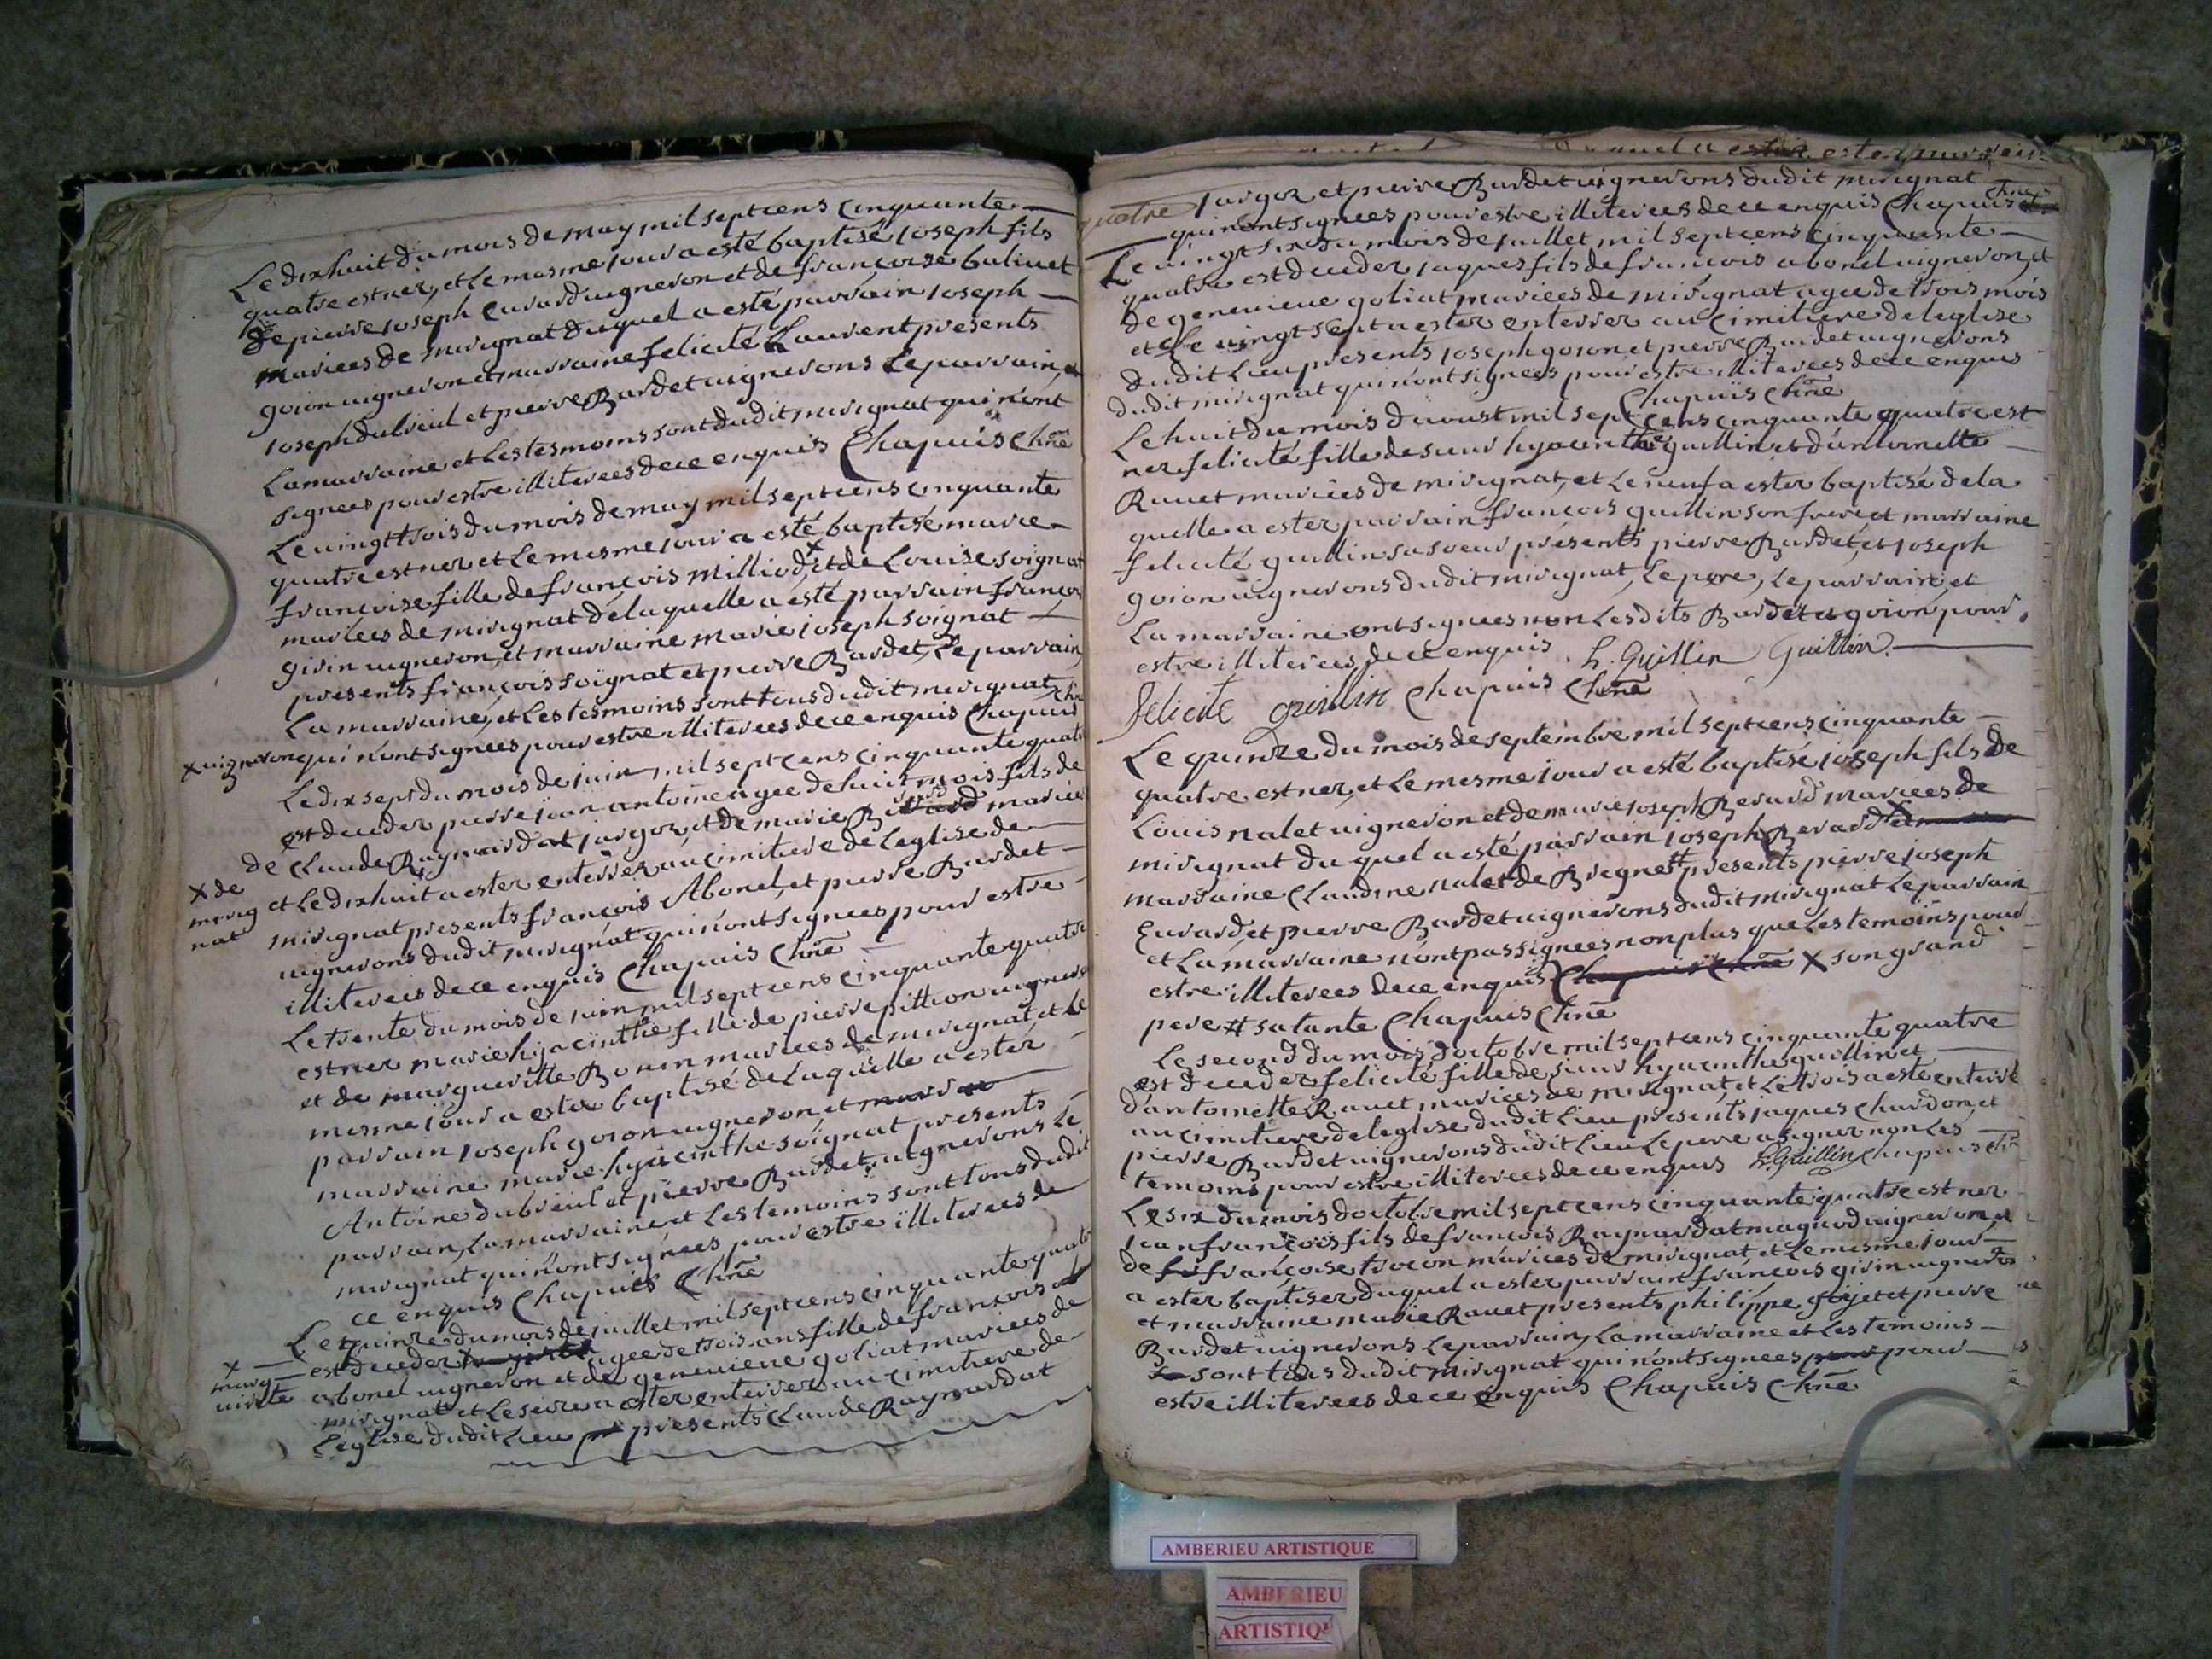 Le dixhuit du mois de may mil sept cens cinquante
quatre est nez, et le mesme iour a esté baptisé ioseph fils
de pierre ioseph Euvard uigneron et de françoise balivet
mariees de mirignat duquel a esté parrain ioseph
goion uigneron et marraine felicité Laurent presents
ioseph dubreul et pierre Bardet uignerons Le parrain,
La marraine et Les tesmoins sont dudit mirignat qui n'ont
signees pour estre illiterees de ce enquis Chapuis Chne
Le uingttrois du mois de may mil sept cens cinquante
quatre est nez et Le mesme iour a esté baptisé marie
françoise fille de françois milliod x et de Louise soignat
mariees de mirignat de laquelle a esté parrain françois
girin uigneron, et marraine marie ioseph soignat
presents françois soignat et pierre Bardet, Le parrain,
La marraine, et Les tesmoins sont tous dudit mirignat
x uigneron qui n'ont signees pour estre illiterees de ce enquis Chapuis Chne
Le dix sept du mois de juin mil sept cens cinquante quatre
est deceder pierre ioan antoine agee de huit mois fils de
de Claude Raymardat iargoz, et de marie mariees
x de mirignat et Le dixhuit a ester enterrer au cimitiere de Leglise de
mirignat presents françois Abonel, et pierre Bardet
uignerons dudit mirignat qui n'ont signees pour estre
illiterees de ce enquis Chapuis Chne
Le trente du mois de juin mil sept cens cinquante quatre
est nez marie hyacinthe fille de pierre pittion uigneron
et de margueritte Bonin mariees de mirignat, et Le
mesme iour a ester baptisé de Laquelle a ester
parrain ioseph goion uigneron et
marraine marie hyacinthe soignat presents
Antoine dubreul et pierre Bardet uignerons Le
parrain, La marraine et Les temoins sont tous dudit
mirignat qui n'ont signees pour estre illiterees de
ce enquis Chapuis Chne
Le quinze du mois de juillet mil sept cens cinquante quatre
est deceder x agee de trois ans fille de françois
abonel uigneron et de geneuieue goliat mariees de
mirignat et Le seize a ester enterrer au cimitiere de
Leglise dudit Lieu presents Claude Raymardat
quatre iargoz et pierre Bardet uignerons dudit mirignat
qui n'ont signees pour estre illiterees de ce enquis Chapuis Chne
Le uingt six du mois de juillet mil sept cens cinquante
quatre est deceder jaques fils de françois abonel uigneron, et
de geneuieue goliat mariees de mirignat agee de trois mois
et Le uingt sept a ester enterrer au cimitiere de leglise
dudit Lieu presents ioseph goion et pierre Bardet uignerons
dudit mirignat qui n'ont signees pour estre illiterees de ce enquis
Chapuis Chne
Le huit du mois d'aoust mil sept cens cinquante quatre est
nez felicité fille de sieur hyacinthe guillin, et d'antoinette
Rauet mariees de mirignat, et Le neuf a ester baptisé de la
quelle a ester parrain françois guillin son frere et marraine
felicité guillin sa soeur presents pierre Bardet, et ioseph
goion uignerons dudit mirignat, Le pere, Le parrain, et
La marraine ont signees non Lesdits Bardet et goion pour
estre illiterees de ce enquis h. Guillin Guillin
felicite guillin Chapuis Chne
Le quinze du mois de septembre mil sept cens cinquante
quatre est nez, et Le mesme iour a esté baptisé ioseph fils de
Louis nalet uigneron et de marie ioseph Berard mariees de
mirignat du quel a esté parrain ioseph Berard x
marraine Claudine nalet de Bregne # presents pierre ioseph
Euvard et pierre Bardet uignerons dudit mirignat Le parrain
et La marraine n'ont pas signees non plus que Les temoins pour
estre illiterees de ce enquis x son grand
pere # sa tante Chapuis Chne
Le second du mois d'octobre mil sept cens cinquante quatre
est deceder felicité fille de sieur hyacinthe guillin et
d'antoinette Rauet mariees de mirignat, et Le trois a esté enterré
au cimitiere de leglise dudit Lieu presents jaques Chardon, et
pierre Bardet uignerons dudit Lieu Le pere a signer non Les
temoins pour estre illiterees de ce enquis h. Guillin Chapuis Chne
Le six du mois d'octobre mil sept cens cinquante quatre est nez
iean françois fils de françois Raynardat magnod uigneron, et
de françoise mariees de mirignat et Le mesme iour
a ester baptiser duquel a ester parrain françois girin uigneron
et marraine marie Rauet presents philippe goyet et pierre
Bardet uignerons Le parrain, La marraine et Les temoins
sont tous dudit mirignat qui n'ont signees pour
estre illiterees de ce enquis Chapuis Chne
x marguerite
AMBERIEU ARTISTIQUE
AMBERIEU
ARTISTIQ